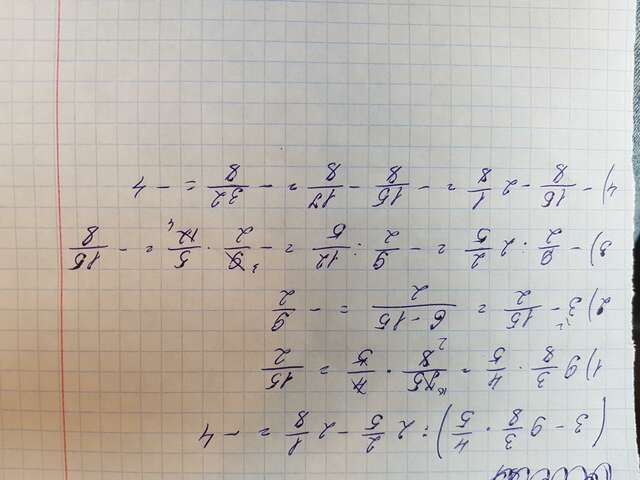 (3 - 9 3/8 · 4/5) : 2 2/5 - 2 1/8 = - 4
1) 9 3/8 · 4/5 = 75/8 · 4/5 = 15/2
2) 3 - 15/2 = 6 - 15/2 = - 9/2
3) - 9/2 : 2 2/5 = - 9/2 : 12/5 = - 9/2 · 5/12 = - 15/8
4) - 15/8 - 2 1/8 = - 15/8 - 17/8 = - 32/8 = - 4